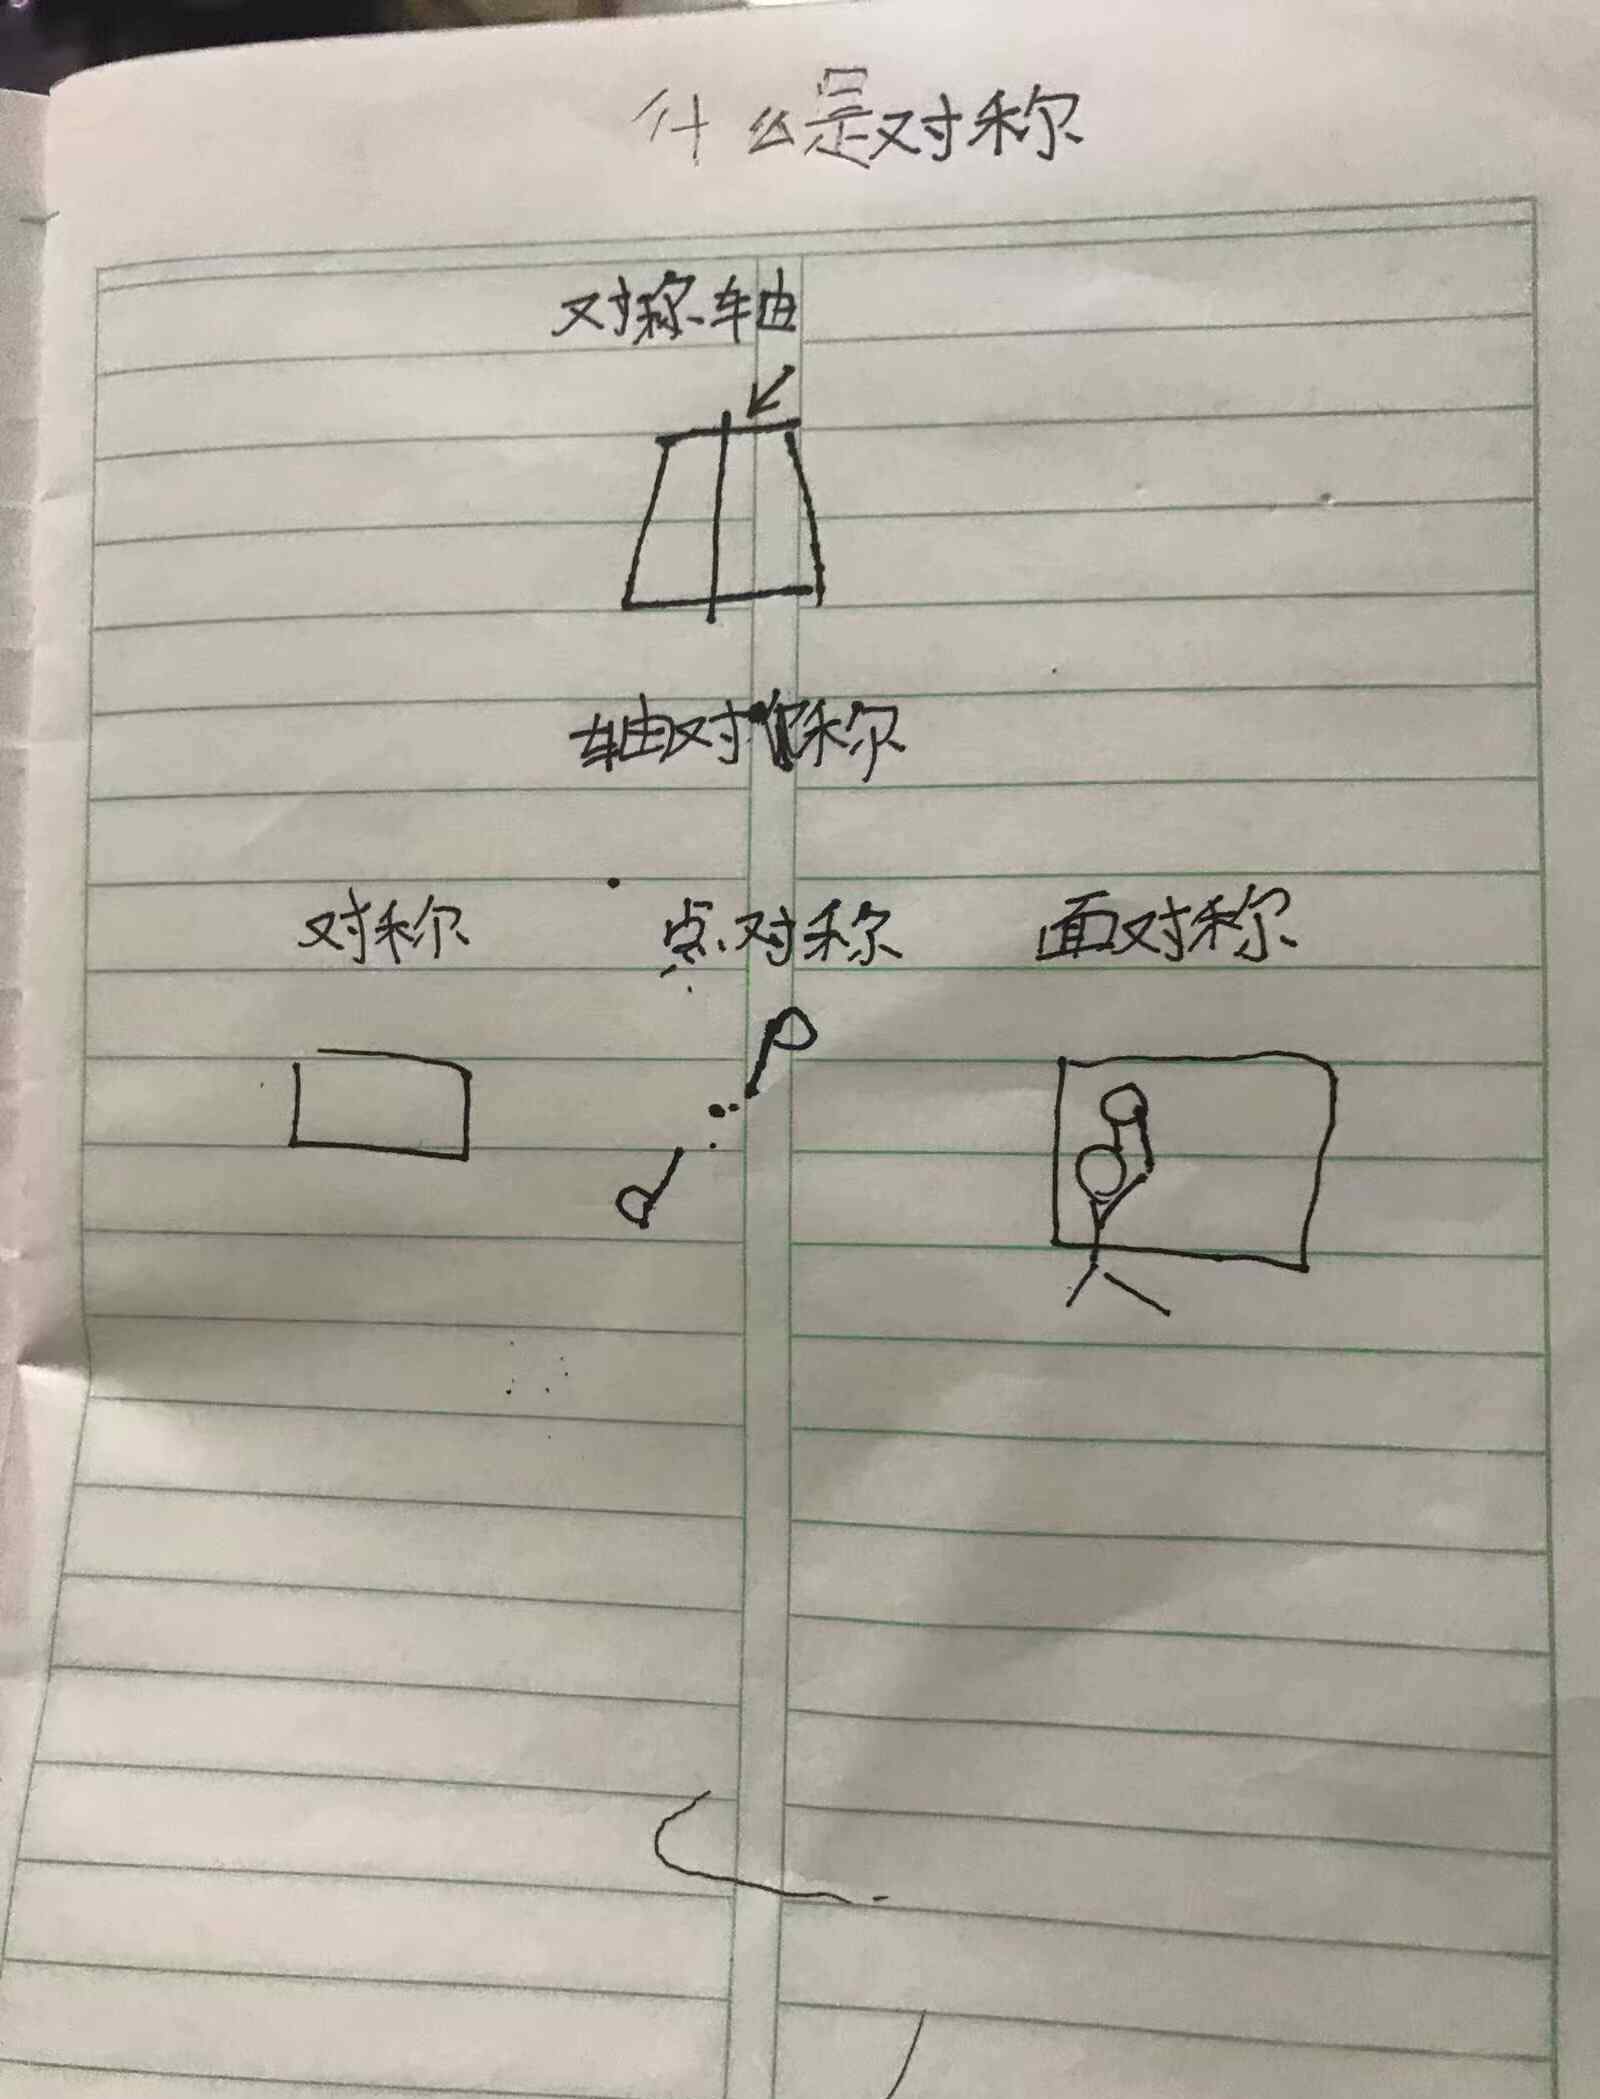 什么是对称
对称轴
轴对称
对称 点对称 面对称